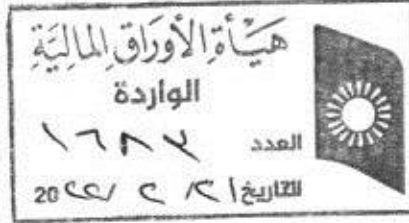 هَيْـأَةِ الأَوْرَاقِ المَالِيَّةِ
الواردة
العدد
التاريخ ٢١/ ٢ /20٢٢